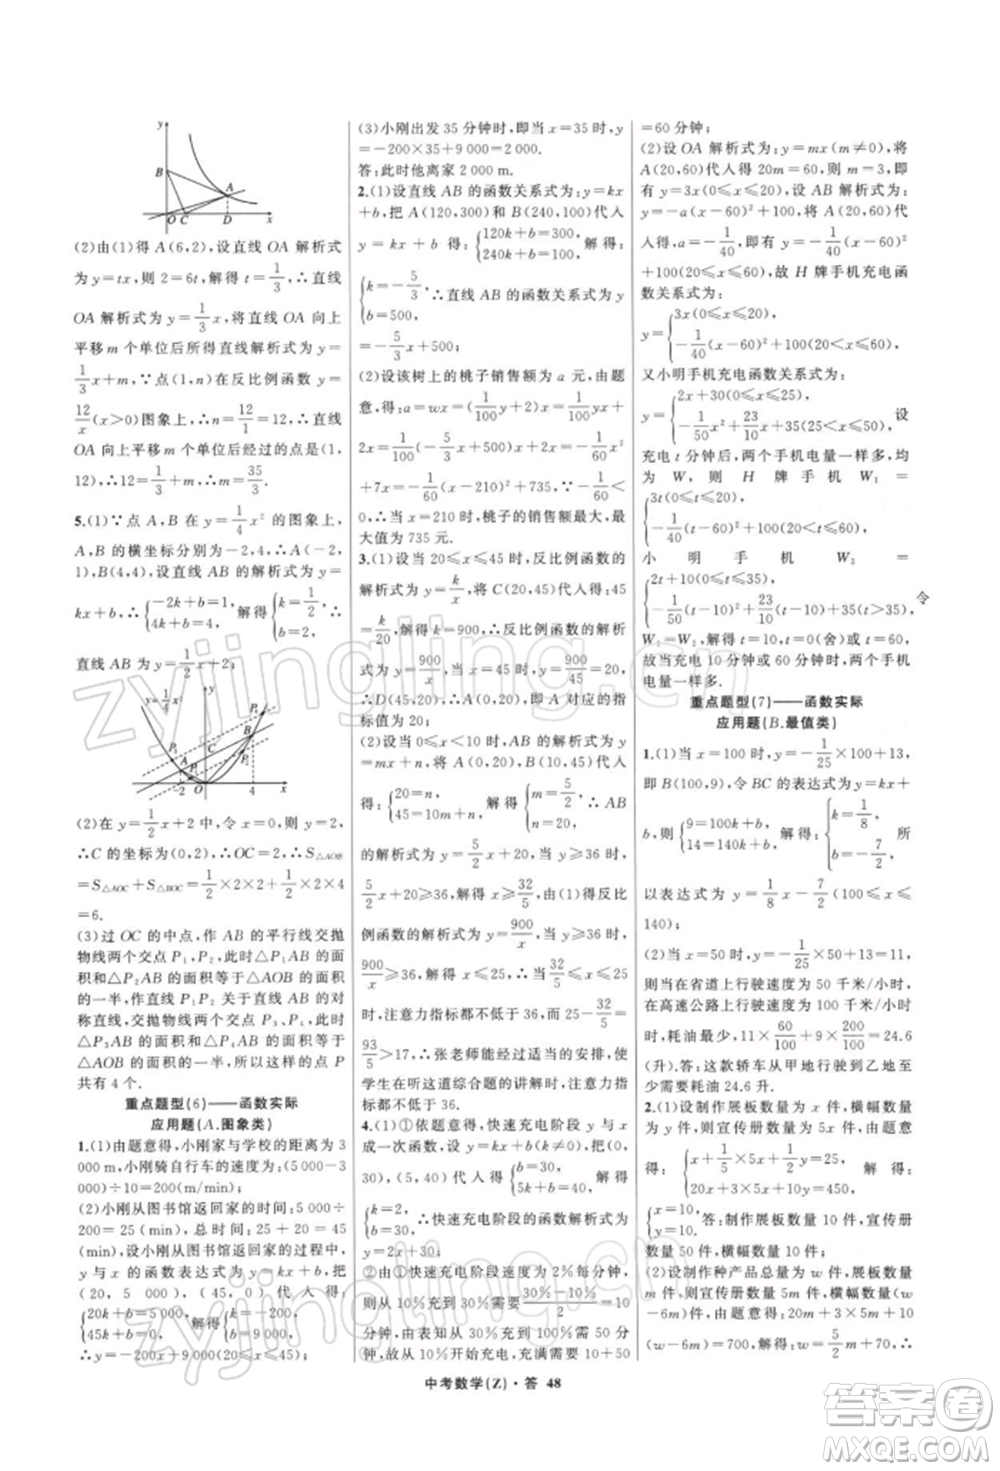 y
B
A
O C D x
(2)由(1)得 A(6,2),设直线 OA 解析式
为 y=tx,则 2=6t,解得 t=1/3,∴直线
OA 解析式为 y=1/3x,将直线 OA 向上
平移 m 个单位后所得直线解析式为 y=
1/3x+m,∵点(n,1)在反比例函数 y=
12/x(x>0)图象上,∴n=12/1=12,∴直线
OA 向上平移 m 个单位后经过的点是(1,
12),∴12=1/3+m,∴m=35/3.
5.(1)∵点 A,B 在 y=1/4x²的图象上,
A,B 的横坐标分别为-2,4,∴A(-2,1),
kx+b,∴{-2k+b=1, 4k+b=4, 解得{k=1/2, b=2,
直线 AB 为 y=1/2x+2;
(2)在 y=1/2x+2 中,令 x=0,则 y=2,
∴C 的坐标为(0,2),∴OC=2,∴S△AOB
=S△AOC+S△BOC=1/2×2×2+1/2×2×4
=6.
(3)过 OC 的中点,作 AB 的平行线交抛
物线两个交点 P₁,P₂,此时△P₁AB 的面
积和△P₂AB 的面积等于△AOB 的面积
的一半,作直线 P₁P₂ 关于直线 AB 的对
称直线,交抛物线两个交点 P₃,P₄,此时
△P₃AB 的面积和△P₄AB 的面积等于
△AOB 的面积的一半,所以这样的点 P
共有 4 个.
重点题型(6)——函数实际
应用题(A.图象类)
1.(1)由题意得,小刚家与学校的距离为 3
000 m,小刚骑自行车的速度为:(5 000-3
000)÷10=200(m/min);
(2)小刚从图书馆返回家的时间:5 000÷
200=25(min),总时间:25+20=45
(min),设小刚从图书馆返回家的过程中,
y 与 x 的函数表达式为 y=kx+b,
把(20,5 000),(45,0)代入得:
{20k+b=5 000, 45k+b=0, 解得{k=-200, b=9 000,
∴y=-200x+9 000(20≤x≤45);
(3)小刚出发 35 分钟时,即当 x=35 时,y
=-200×35+9 000=2 000.
答:此时他离家 2 000 m.
2.(1)设直线 AB 的函数关系式为:y=kx
+b,把 A(120,300)和 B(240,100)代入
y=kx+b 得:{120k+b=300, 240k+b=100, 解得:
{k=-5/3, b=500, ∴直线 AB 的函数关系式为 y
=-5/3x+500;
(2)设该树上的桃子销售额为 a 元,由题
意,得:a=wx=(1/100y+2)x=1/100yx+
2x=1/100(-5/3x+500)x+2x=-1/60x²
+7x=-1/60(x-210)²+735,∵-1/60<
0,∴当 x=210 时,桃子的销售额最大,最
大值为 735 元.
3.(1)设当 20≤x≤45 时,反比例函数的
解析式为 y=k/x,将 C(20,45)代入得:45=
k/20,解得 k=900,∴反比例函数的解析
式为 y=900/x,当 x=45 时,y=900/45=20,
∴D(45,20),∴A(0,20),即 A 对应的指
标值为 20;
(2)设当 0≤x<10 时,AB 的解析式为 y
=mx+n,将 A(0,20)、B(10,45)代入
得:{20=n, 45=10m+n, 解得{m=5/2, n=20, ∴AB
的解析式为 y=5/2x+20,当 y≥36 时,
5/2x+20≥36,解得 x≥32/5,由(1)得反比
例函数的解析式为 y=900/x,当 y≥36 时,
900/x≥36,解得 x≤25,∴32/5≤x≤25
时,注意力指标都不低于 36,而 25-32/5=
93/5>17,∴张老师能经过适当的安排,使
学生在听这道综合题的讲解时,注意力指
标都不低于 36.
4.(1)①依题意得,快速充电阶段函数关系
成一次函数,设 y=kx+b(k≠0),把(0,
30),(5,40)代入得{b=30, 5k+b=40, 解得
{k=2, b=30, ∴快速充电阶段的函数解析式
y=2x+30;
②由①快速充电阶段的速度为 2%每分钟,
则从 10%充到 30%需要(30%-10%)/2=10
分钟,由表知从 30%充到 100%需 50 分
钟,故从 10%开始充电,充满需要 10+50
=60 分钟;
(2)设 OA 解析式为:y=mx(m≠0),将
A(20,60)代入得 20m=60,解得 m=3,即
有 y=3x(0≤x≤20);设 AB 解析式为:
y=-a(x-60)²+100,将 A(20,60)代
入得,a=-1/40,即有 y=-1/40(x-60)²
+100(20≤x≤60);故 H 牌手机充电函
数关系式为:
y={3x(0≤x≤20), -1/40(x-60)²+100(20≤x≤60),
又小明手机充电函数关系式为:
y={2x+30(0≤x≤20), -1/50x²+23/10x+35(20≤x≤50), 设
充电 t 分钟后,两个手机电量一样多,
均为 W,则 H 牌手机 W₁=
{3t(0≤x≤20), -1/40(t-60)²+100(20≤t≤60),
小明手机 W₂=
{2t+10(0≤x≤20), -1/50(t-10)²+23/10(t-10)+35(t>20), 令
W₁=W₂,解得 t=10,t=0(舍)或 t=
故当充电 10 分钟或 分钟时,两个手机
电量一样多.
重点题型(7)——函数实际
应用题(B.最值类)
1.(1)当 x=100 时,y=-1/25×100+13,
即 B(100,9),令 BC 的表达式为 y=kx+
b,则{9=100k+b, 14=140k+b, 解得:{k=1/8, b=-7/2, 所
以表达式为 y=1/8x-7/2(100≤x≤
140);
(2)当 x=50 时,y=-1/25×50+13=11,
则当在省道上行驶速度为 50 千米/小时,
在高速公路上行驶速度为 100 千米/小时
时,耗油最少,11×60/100+9×200/100=24.6
(升).答:这款轿车从甲地行驶到乙地至
少需要耗油 24.6 升.
2.(1)设制作展板数量为 x 件,横幅数量
为 y 件,则宣传册数量为 5x 件,由题意
得:{x+1/5×5x+1/2y=25, 20x+3×5x+10y=450, 解得:
{x=10, y=10. 答:制作展板数量 10 件,宣传册
数量 50 件,横幅数量 10 件;
(2)设制作三种产品总量为 w 件,展板数量
m 件,则宣传册数量 5m 件,横幅数量(w
-6m)件,由题意得:20m+3×5m+10
(w-6m)=700,解得:w=5/2m+70,∴
中考数学(Z)·答 48
zyjingling.cn
zyjingling.cn
答案圈
MXQE.COM